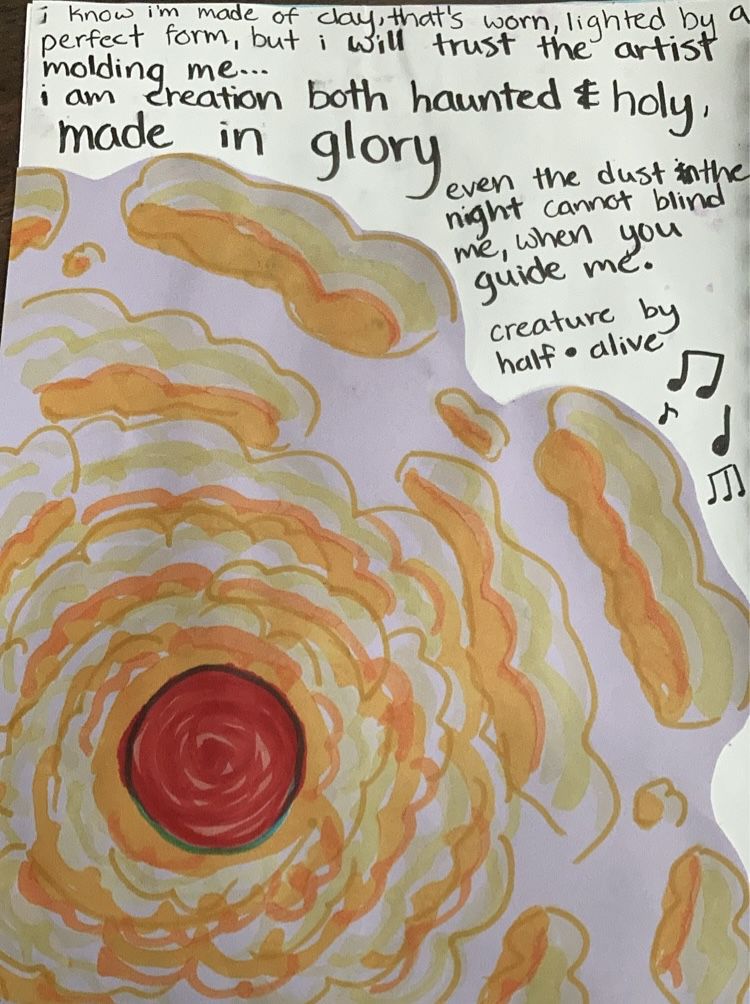 i know i'm made of clay, that's worn, lighted by a
perfect form, but i will trust the artist
molding me...
i am creation both haunted & holy,
made in glory
even the dust in the
night cannot blind
me, when you
guide me.
creature by
half • alive